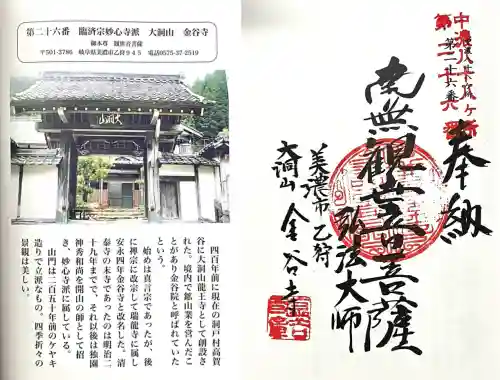 第二十六番　臨済宗妙心寺派　大洞山　金谷寺
御本尊　観世音菩薩
〒501-3786　岐阜県美濃市乙狩９４５　電話0575-37-2519
大洞山
四百年前に現在の洞戸村高賀
谷に大洞山龍王寺として創設さ
れた。境内で鉱山業を営んだこ
とがあり金谷院と呼ばれていた
という。
始めは真言宗であったが、後
に禅宗に改宗して瑞龍寺に属し
安永四年金谷寺と改名した。清
泰寺の末寺であったのは明治二
十九年までで、それ以後は独園
神秀和尚を開山の師として招
き、妙心寺派に属している。
山門は二百五十年前のケヤキ
造りで立派なもの。四季折々の
景観は美しい。
奉納
南無観世音菩薩
弘法大師
美濃市乙狩
大洞山　金谷寺